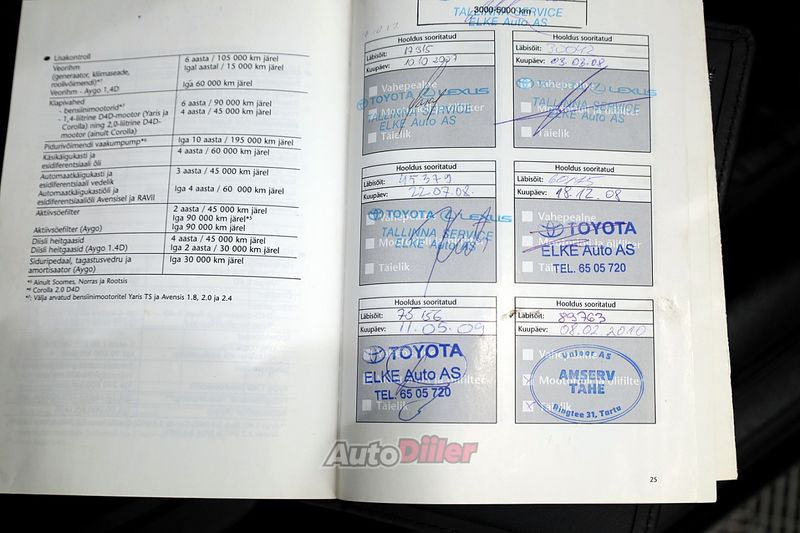 Lisakontroll
Veorihm
(generaator, kliimaseade,
roolivõimendi)*¹
Veorihm - Aygo 1,4D
6 aasta / 105 000 km järel
Igal aastal / 15 000 km järel
Iga 60 000 km järel
Klapivahed
- bensiinimootorid*²
- 1,4-liitrine D4D-mootor (Yaris ja
Corolla) ning 2,0-liitrine D4D-
mootor (ainult Corolla)
6 aasta / 90 000 km järel
4 aasta / 45 000 km järel
Pidurivõimendi vaakumpump*³
Iga 10 aasta / 195 000 km järel
Käsikäigukasti ja
esidiferentsiaali õli
4 aasta / 60 000 km järel
Automaatkäigukasti ja
esidiferentsiaali vedelik
Automaatkäigukastiõli ja
esidiferentsiaaliõli Avensisel ja RAVil
3 aasta / 45 000 km järel
Iga 4 aasta / 60 000 km järel
Aktiivsöefilter
Aktiivsöefilter (Aygo)
2 aasta / 45 000 km järel
Iga 90 000 km järel*³
Iga 90 000 km järel
Diisli heitgaasid
Diisli heitgaasid (Aygo 1.4D)
4 aasta / 45 000 km järel
Iga 2 aasta / 30 000 km järel
Siduripedaal, tagastusvedru ja
amortisaator (Aygo)
Iga 30 000 km järel
*¹ Ainult Soomes, Norras ja Rootsis
*² Corolla 2.0 D4D
*³: Välja arvatud bensiinimootoritel Yaris TS ja Avensis 1.8, 2.0 ja 2.4
3000-5000 km
TALLINNA SERVICE
ELKE Auto AS
Hooldus sooritatud
Läbisõit: 17315
Kuupäev: 10.10.2007
Vahepealne
Mootoriõli ja õlifilter
Täielik
TOYOTA LEXUS
TALLINNA SERVICE
ELKE Auto AS
Hooldus sooritatud
Läbisõit: 30042
Kuupäev: 03.03.08
Vahepealne
Täielik
TOYOTA LEXUS
TALLINNA SERVICE
ELKE Auto AS
Hooldus sooritatud
Läbisõit: 45379
Kuupäev: 22.07.08.
Vahepealne
Täielik
TOYOTA LEXUS
TALLINNA SERVICE
ELKE Auto AS
Hooldus sooritatud
Läbisõit: 60145
Kuupäev: 18.12.08
Vahepealne
Mootoriõli ja õlifilter
TOYOTA
ELKE Auto AS
TEL. 65 05 720
Hooldus sooritatud
Läbisõit: 75156
Kuupäev: 11.05.09
TOYOTA
ELKE Auto AS
TEL. 65 05 720
Täielik
Hooldus sooritatud
Läbisõit: 89763
Kuupäev: 08.02.2010
Mootoriõli ja õlifilter
Täielik
AMSERV
TAHE
Ringtee 31, Tartu
AutoDiller
25